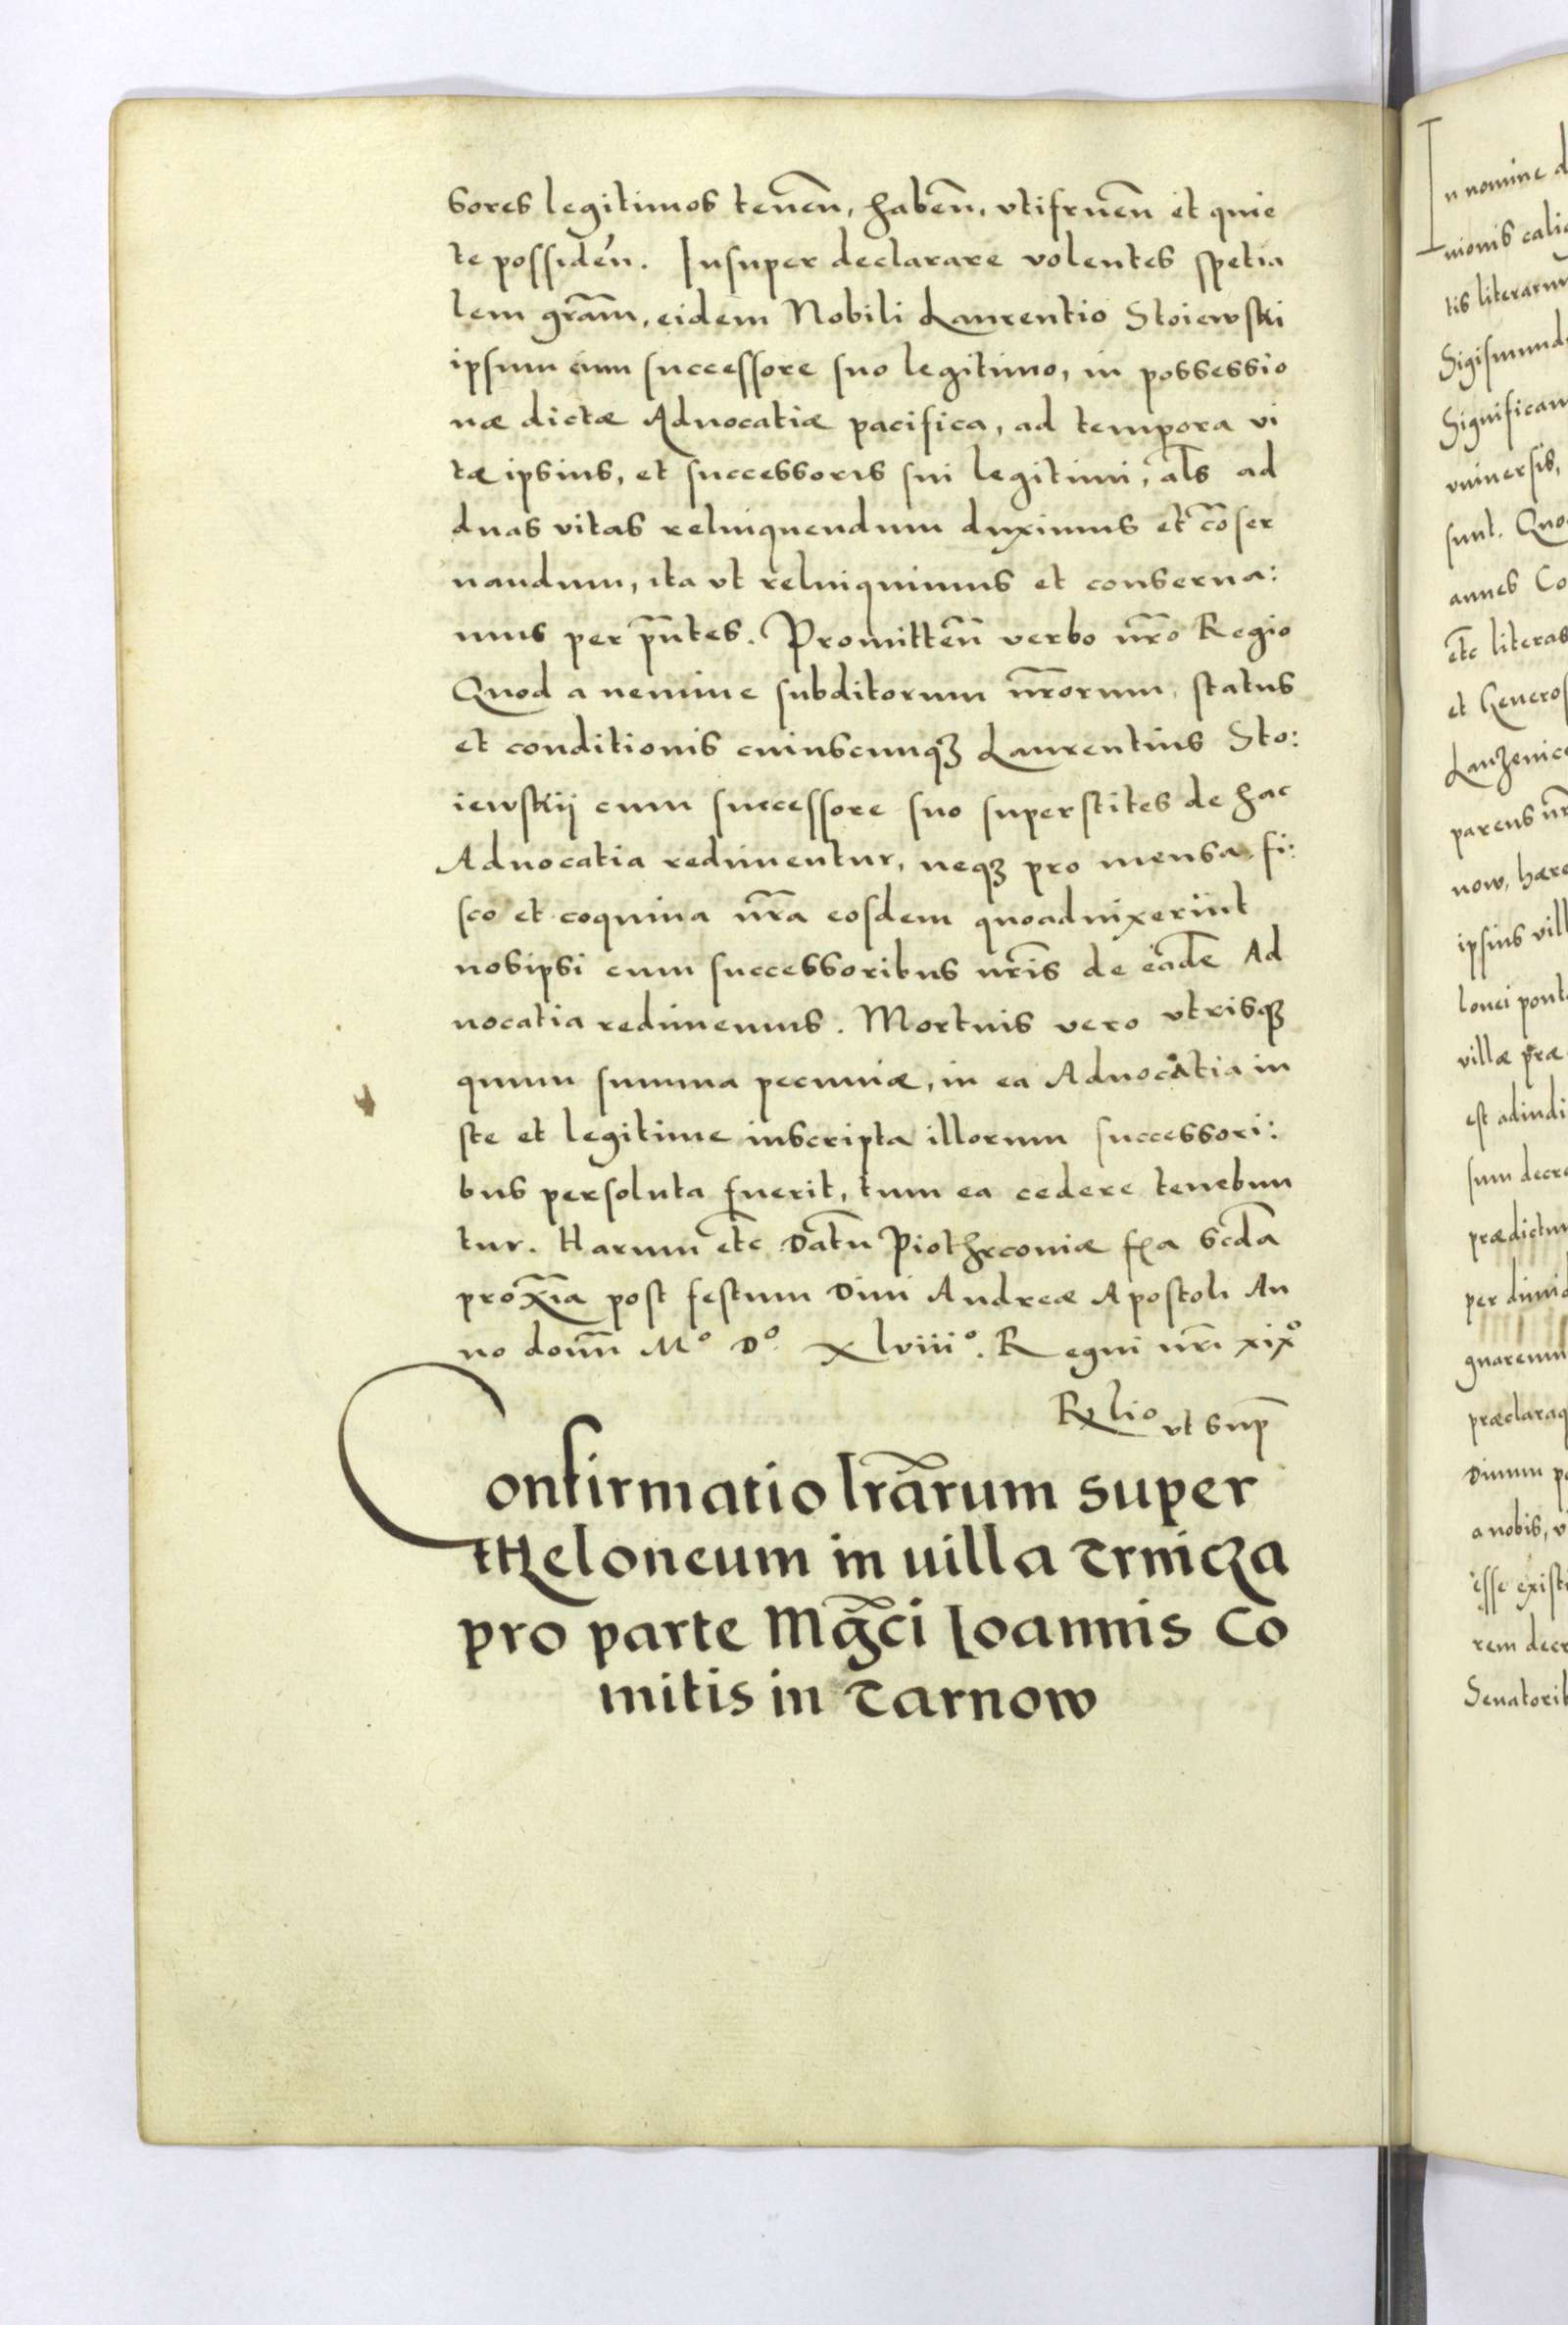 sores legitimos teneñ, habeñ, vtifrueñ et quie
te possideń. Insuper declarare volentes spetia
lem gr̃am, eidem Nobili Laurentio Stoiewski
ipsum cum successore suo legitimo, in possessio
næ dictæ Aduocatiæ pacifica, ad tempora vi
tæ ipsius, et successoris sui legitimi, al̃s ad
duas vitas relinquendum duximus et cõser
uandum, ita vt relinquimus et conserua:
mus per pñtes. Promitteñ verbo nr̃o Regio
Quod a nemine subditorum nr̃orum, status
et conditionis cuiuscunqꝫ Laurentius Sto:
iewskij cum successore suo superstites de hac
Aduocatia redimentur, neqꝫ pro mensa, fi:
sco et coquina nr̃a eosdem quoaduixerint
nosipsi cum successoribus nr̃is de eadẽ Ad
uocatia redimemus. Mortuis vero vtrisqꝫ
quum summa pecuniæ, in ea Aduocatia iu
ste et legitime inscripta illorum successori:
bus persoluta fuerit, tum ea cedere tenebun
tur. Harum et̃c Dat̃u Piothrconiæ fr̃a scd̃a
prox̃ia post festum Diui Andreæ Apostoli An
no doñi Mº Dº xlviiiº. Regni nr̃i xixº
Rl̃io vt sup̃
Confirmatio lr̃arum super
theloneum in uilla Trnicza
pro parte Mg̃ci Ioannis Co
mitis in Tarnow
In nomine d
uionis calig
tis literarum
Sigismund
Significam
vniuersis,
sunt. Quo
annes Co
et̃c literas
et Generos
Lanzenice
parens nr̃
now, hære
ipsius vill
lonei pont
villæ præ
est adiudi
sum decre
prædictum
per dimid
gnaremu
præclaraq
Diuum p
a nobis, v
esse existi
rem decr
Senatorib